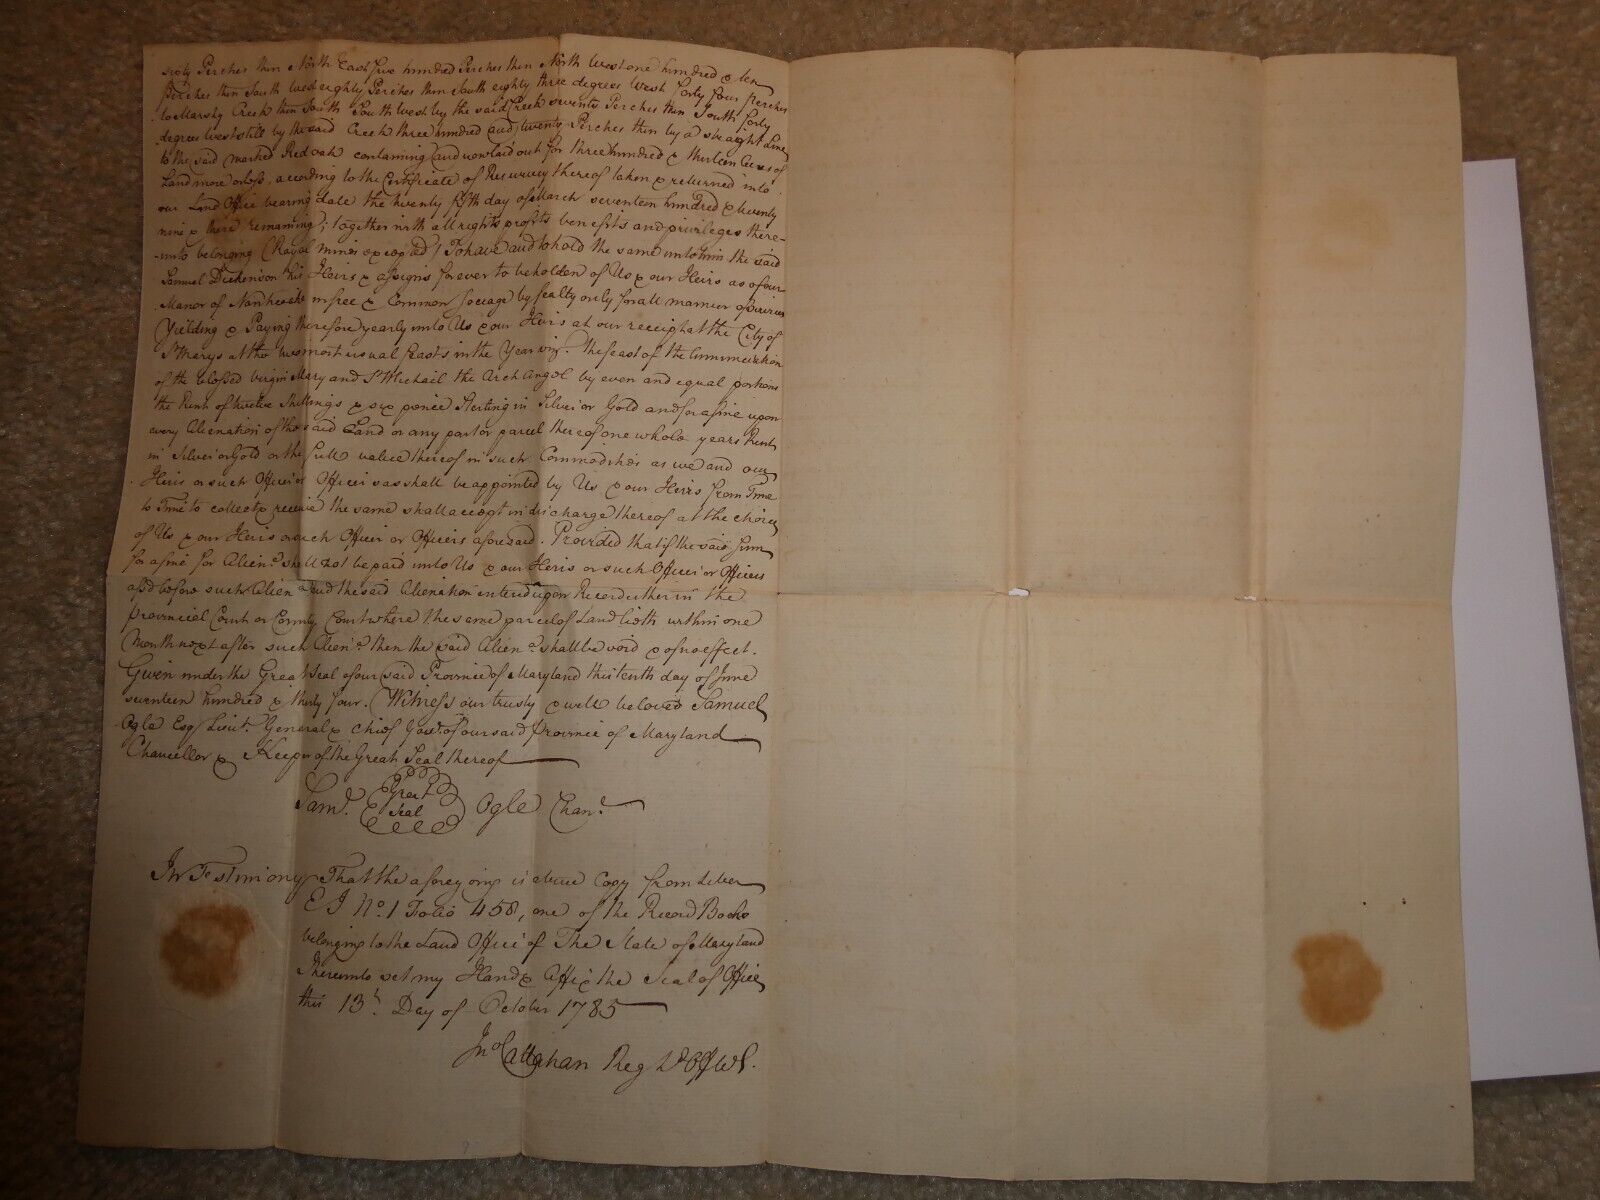 sixty Perches then North East five hundred Perches then North West one hundred & ten
Perches then South West eighty Perches then South eighty three degrees West forty four perches
to Marshy Creek then South South West by the said Creek seventy Perches then South forty
degrees West still by the said Creek three hundred and twenty Perches then by a straight Line
to the said marked Red oak containing and now laid out for three hundred & thirteen Acres of
Land more or less, according to the Certificate of Resurvey thereof taken & returned into
our Land Office bearing date the twenty fifth day of March seventeen hundred & twenty
nine & there remaining; together with all rights profits benefits and privileges there-
-unto belonging (Royal mines excepted) To have and to hold the same unto him the said
Samuel Dickenson his Heirs & assigns forever to be holden of Us & our Heirs as of our
Manor of in free & Common Soccage by fealty only for all manner of services
Yielding & Paying therefore yearly unto Us & our Heirs at our receipt at the City of
St Marys at the two most usual feasts in the Year viz. the feast of the Annunciation
of the blessed virgin Mary and St Michail the Arch Angel by even and equal portions
the Rent of twelve Shillings & six pence Sterling in Silver or Gold and for a fine upon
every Alienation of the said Land or any part or parcel thereof one whole years Rent
in Silver or Gold or the full value thereof in such Commodities as we and our
Heirs or such Officer or Officers as shall be appointed by Us & our Heirs from Time
to Time to collect & receive the same shall accept in discharge thereof at the choice
of Us & our Heirs or such Officer or Officers aforesaid. Provided that if the said sum
for a fine for Alien.n shall not be paid unto Us & our Heirs or such Officer or Officers
afsd before such Alien.n and the said Alienation entered upon Record either in the
Provincial Court or County Court where the same parcel of Land lieth within one
Month next after such Alien.n then the said Alien.n shall be void & of no effect.
Given under the Great Seal of our said Province of Maryland this tenth day of June
seventeen hundred & thirty four. Witness our trusty & well beloved Samuel
Ogle Esq Lieut. General & chief Gov.r of our said Province of Maryland
Chancellor & Keeper of the Great Seal thereof
Sam.l Great Seal Ogle Chan.r
In Testimony That the aforegoing is a true Copy from Liber
E I No. 1 Folio 458, one of the Record Books
belonging to the Land Office of The State of Maryland
I hereunto set my Hand & Affix the Seal of Office
this 13th Day of October 1785
Jno Callahan Reg